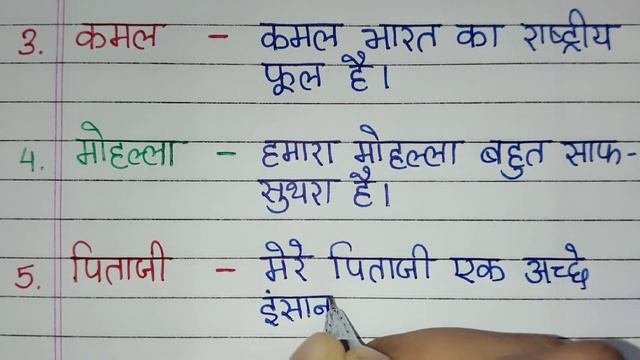 3. कमल - कमल भारत का राष्ट्रीय
फूल है।
4. मोहल्ला - हमारा मोहल्ला बहुत साफ-
सुथरा है।
5. पिताजी - मेरे पिताजी एक अच्छे
इंसान